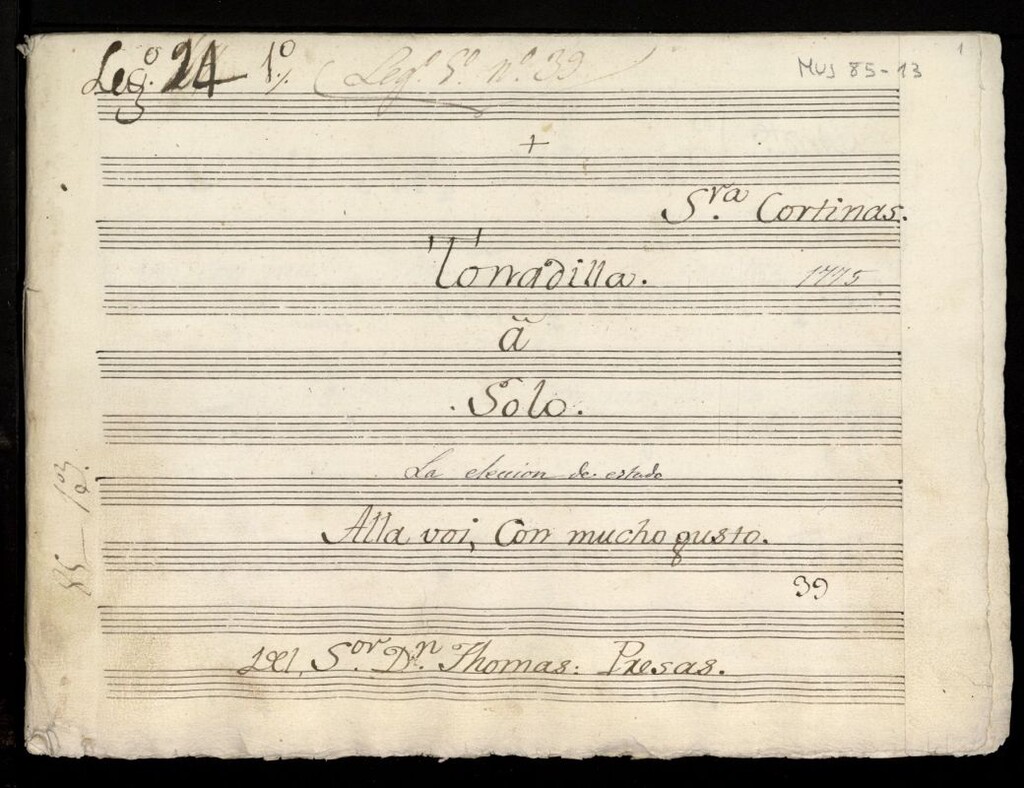 Leg.º 24 1º (Leg.º 5º nº 39.) MUS 85-13 1
+
S.ra Cortinas.
Tonadilla. 1775
â
Solo.
La eleccion de estado
Alla voi, Con mucho gusto.
39
Del, S.or D.n Thomas: Presas.
85-13